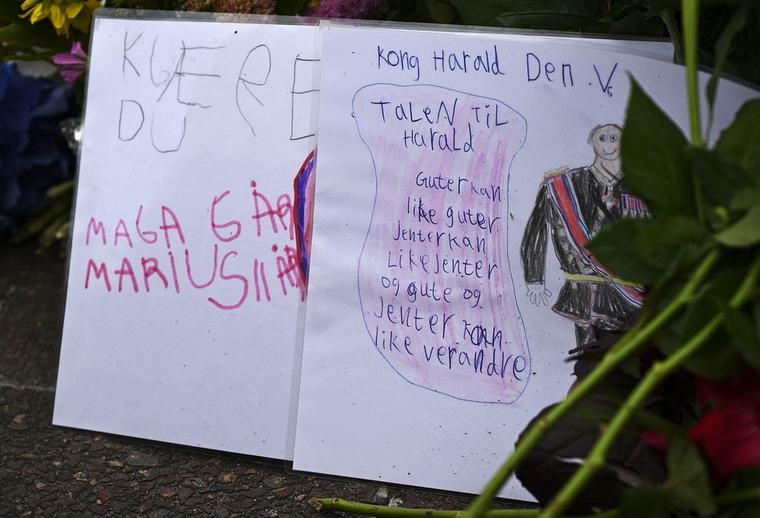 KLÆRE
DU
MAGA 6 ÅR
MARIUS 11 ÅR
Kong Harald Den V.
TaLeN TiL
Harald
Guter kan
like guter
Jenter kan
Like Jenter
og gute og
Jenter kan
like verandre